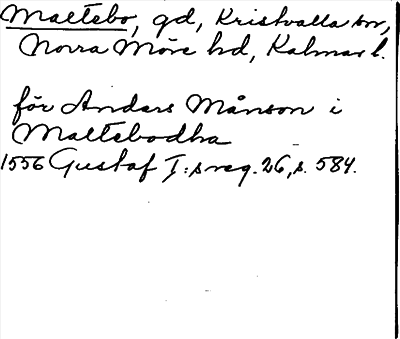 Maltebo, gd, Kristvalla sn,
Norra Möre hd, Kalmar l.
för Anders Månson i
Maltebodha
1556 Gustaf I:s reg. 26, s. 584.